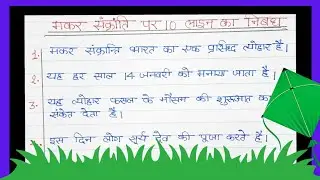 मकर संक्रांति पर 10 लाइन का निबंध
1. मकर संक्रान्ति भारत का एक प्रसिद्ध त्योहार है।
2. यह हर साल 14 जनवरी को मनाया जाता है।
3. यह त्योहार फसल के मौसम की शुरूआत का
संकेत देता है।
इस दिन लोग सूर्य देव की पूजा करते हैं।